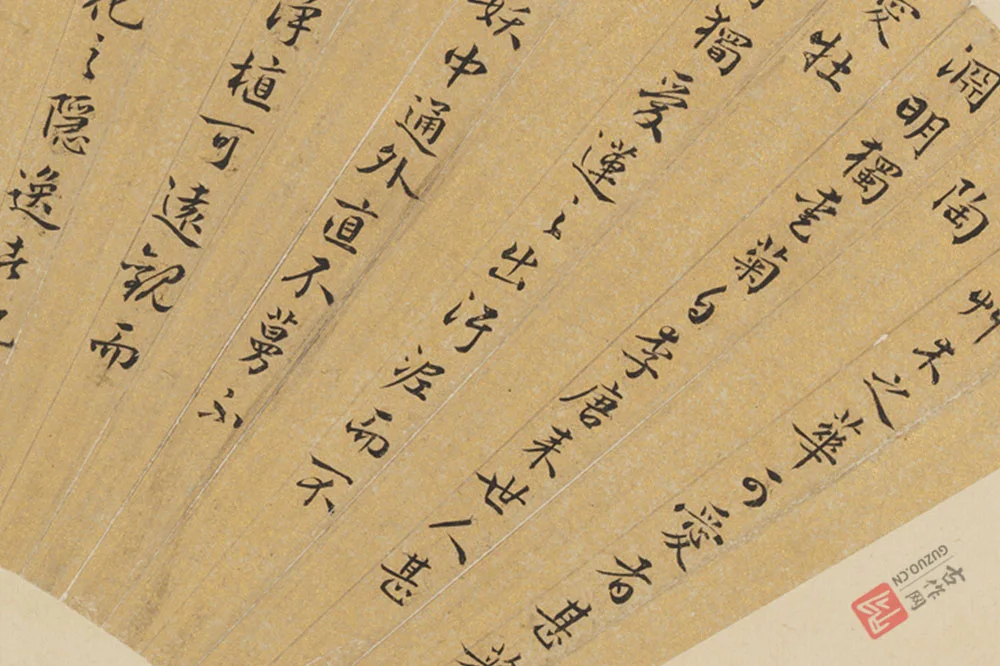 艸木之華可愛者甚
陶
淵明獨爱菊自李唐来世人甚
愛牡
獨爱蓮之出汙泥而不
妖中通外直不蔓不
淨植可遠觀而
花之隱逸者也
古作网
GUZUO.CN